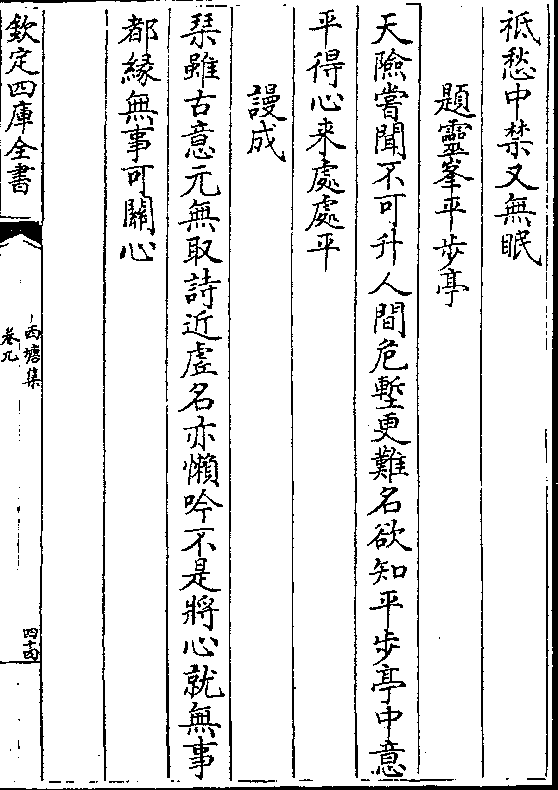 祗愁中禁又無眠
題靈峯平歩亭
天險嘗聞不可升人間危塹更難名欲知平歩亭中意
平得心来處處平
謾成
琹雖古意元無取詩近虚名亦懶吟不是將心就無事
都縁無事可關心
欽定四庫全書
西塘集
卷九
四十四